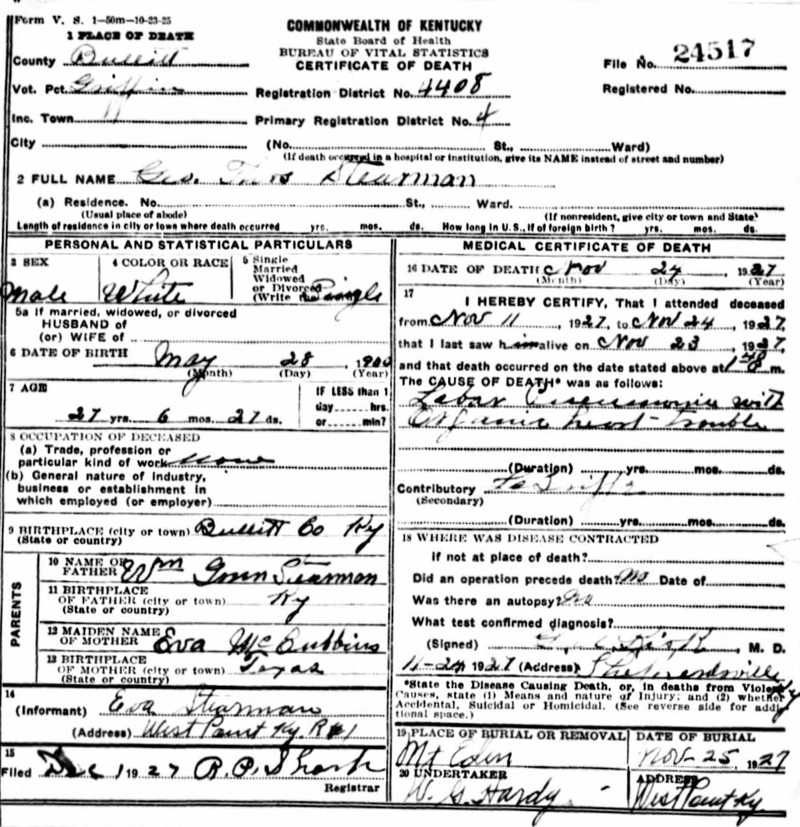 Form V. S. 1-50m-10-23-25
1 PLACE OF DEATH
County Bullitt
Vot. Pct. Griffin
Inc. Town
City
COMMONWEALTH OF KENTUCKY
State Board of Health
BUREAU OF VITAL STATISTICS
CERTIFICATE OF DEATH
Registration District No. 4408
Primary Registration District No. 4
File No. 24517
Registered No.
(No. St., Ward)
(If death occurred in a hospital or institution, give its NAME instead of street and number)
2 FULL NAME Geo. Stearman
(a) Residence. No. St., Ward.
(Usual place of abode) (If nonresident, give city or town and State)
Length of residence in city or town where death occurred yrs. mos. ds. How long in U. S., if of foreign birth? yrs. mos. ds.
PERSONAL AND STATISTICAL PARTICULARS
3 SEX
Male
4 COLOR OR RACE
White
5 Single
Married
Widowed
or Divorced
(Write Single
5a If married, widowed, or divorced
HUSBAND of
(or) WIFE of
6 DATE OF BIRTH May 28 1900
(Month) (Day) (Year)
7 AGE
27 yrs. 6 mos. 27 ds.
IF LESS than 1
day......hrs.
or......min?
8 OCCUPATION OF DECEASED
(a) Trade, profession or
particular kind of work none
(b) General nature of industry,
business or establishment in
which employed (or employer)
9 BIRTHPLACE (city or town) Bullitt Co Ky
(State or country)
PARENTS
10 NAME OF
FATHER Wm Stearman
11 BIRTHPLACE
OF FATHER (city or town) Ky
(State or country)
12 MAIDEN NAME
OF MOTHER Eva McCubbins
13 BIRTHPLACE
OF MOTHER (city or town) Texas
(State or country)
14
(Informant) Eva Stearman
(Address) West Point Ky. R#1
15
Filed Dec 1 1927
Registrar
MEDICAL CERTIFICATE OF DEATH
16 DATE OF DEATH Nov 24 1927
(Month) (Day) (Year)
17
I HEREBY CERTIFY, That I attended deceased
from Nov 11, 1927, to Nov 24, 1927,
that I last saw him alive on Nov 23, 1927,
and that death occurred on the date stated above at m.
The CAUSE OF DEATH* was as follows:
Lobar Pneumonia with
Organic heart trouble
(Duration) yrs. mos. ds.
Contributory
(Secondary)
(Duration) yrs. mos. ds.
18 WHERE WAS DISEASE CONTRACTED
if not at place of death?
Did an operation precede death? No Date of
Was there an autopsy? No
What test confirmed diagnosis?
(Signed) M. D.
11-24 1927 (Address) Shepherdsville Ky
*State the Disease Causing Death, or, in deaths from Violent
Causes, state (1) Means and nature of Injury; and (2) whether
Accidental, Suicidal or Homicidal. (See reverse side for addi
tional space.)
19 PLACE OF BURIAL OR REMOVAL
Mt Eden
DATE OF BURIAL
Nov-25, 1927
20 UNDERTAKER
W. G. Hardy
ADDRESS
West Point Ky.